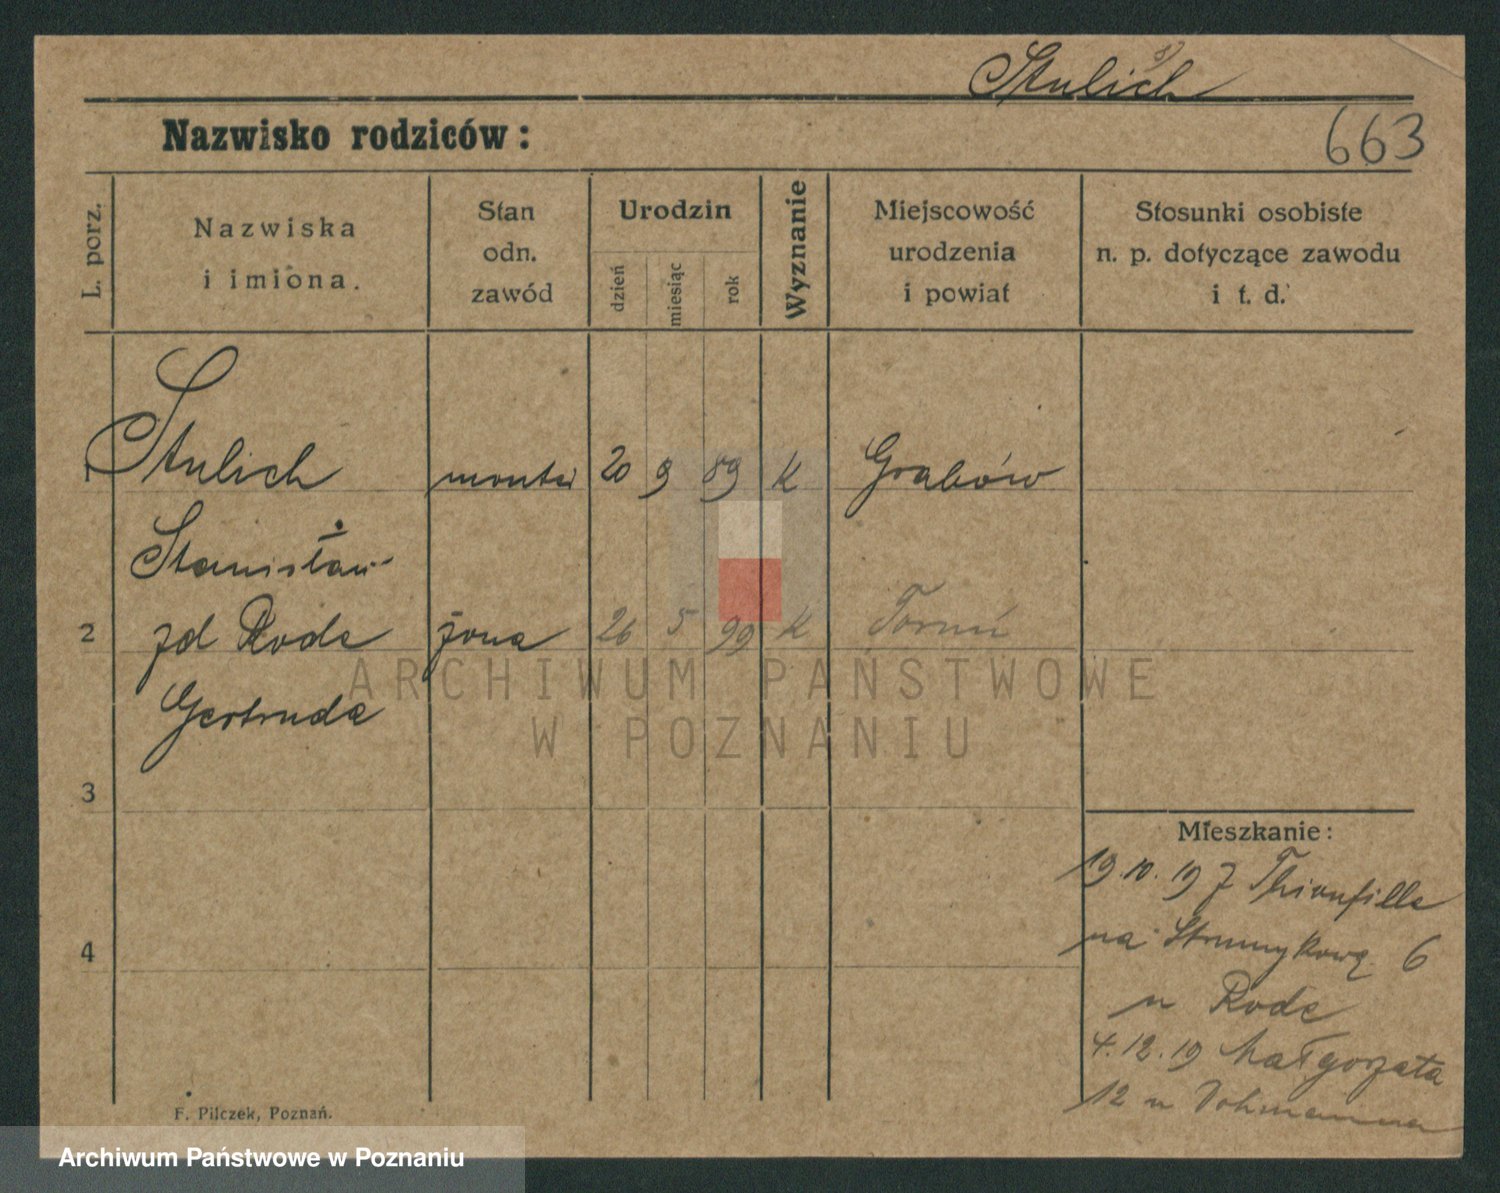 Stulich
Nazwisko rodziców:
663
L. porz.
Nazwiska
i imiona.
Stan
odn.
zawód
Urodzin
dzień
miesiąc
rok
Wyznanie
Miejscowość
urodzenia
i powiat
Stosunki osobiste
n. p. dotyczące zawodu
i t. d.
1 Stulich monter 20 9 89 K Grabów
Stanisław
2 zd Rode żona 26 5 99 K Toruń
Gertruda
3
4
Mieszkanie:
19.10.19 z
na Strumykową 6
u Rode
4.12.19 Małgorzata
12 u
F. Pilczek, Poznań.
ARCHIWUM PAŃSTWOWE
W POZNANIU
Archiwum Państwowe w Poznaniu